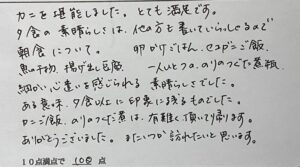 カニを堪能しました。とても満足です。
夕食の素晴らしさは、他の方も書いていらっしゃるので
朝食について。 卵かけごはん、カニご飯、
魚の干物、揚げ出し豆腐 一人ひとつのりつくだ煮瓶
細かい心遣いを感じられる 素晴らしさでした。
ある意味、夕食以上に印象に残るものでした。
カニご飯、のりのつくだ煮は、有難く頂いて帰ります。
ありがとうございました。またいつか訪れたいと思います。
10点満点で 100 点